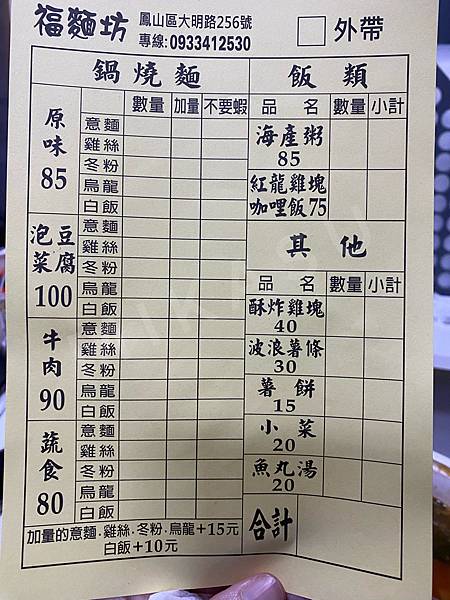 福麵坊 鳳山區大明路256號
專線:0933412530
□外帶
鍋燒麵
數量 加量 不要蝦
原味 85
意麵
雞絲
冬粉
烏龍
白飯
泡菜豆腐 100
意麵
雞絲
冬粉
烏龍
白飯
牛肉 90
意麵
雞絲
冬粉
烏龍
白飯
蔬食 80
意麵
雞絲
冬粉
烏龍
白飯
加量的意麵.雞絲.冬粉.烏龍+15元
白飯+10元
飯類
品名 數量 小計
海產粥
85
紅龍雞塊
咖哩飯75
其他
品名 數量 小計
酥炸雞塊
40
波浪薯條
30
薯餅
15
小菜
20
魚丸湯
20
合計